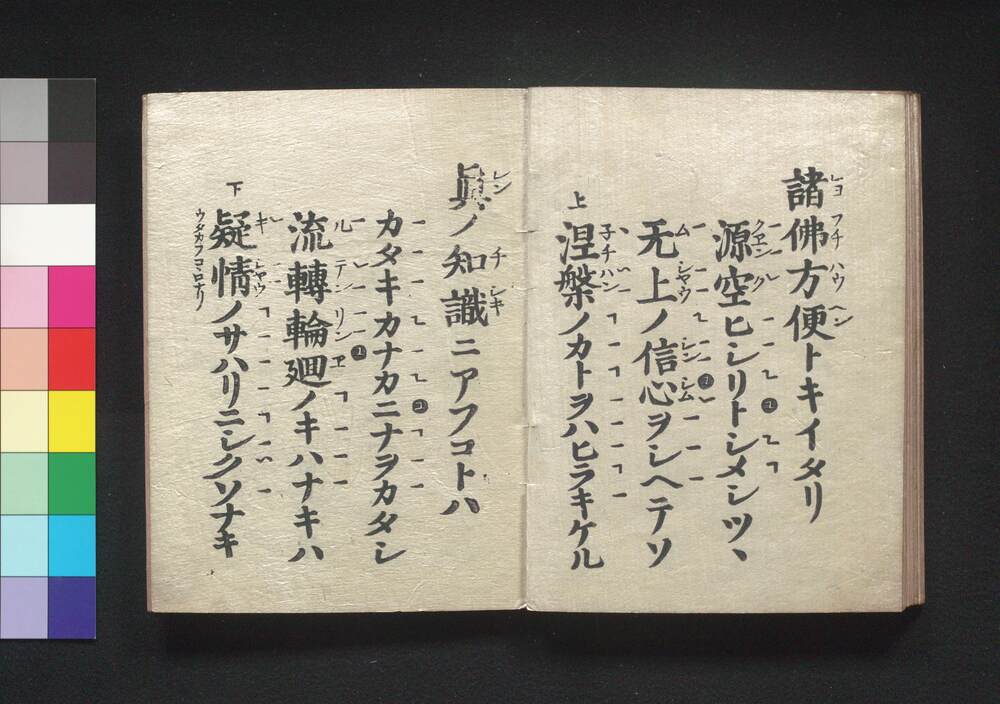 諸佛方便トキイタリ
源空ヒシリトシメシツヽ
无上ノ信心ヲシヘテソ
涅槃ノカトヲハヒラキケル
眞ノ知識ニアフコトハ
カタキカナカニナヲカタシ
流轉輪廻ノキハナキハ
疑情ノサハリニシクソナキ
ウタカフコヽロナリ